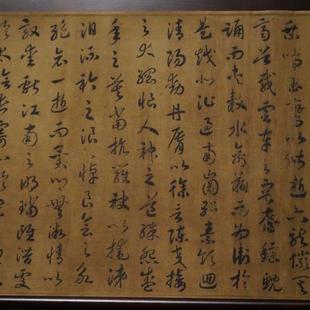 鳴玉鸞以偕逝六龍儼其
齊首載雲車之容裔鯨鯢
踊而夾轂水禽翔而為衛於
是越北沚過南岡紆素領迴
清陽動丹脣以徐言陳交接
之大綱恨人神之道殊怨盛
年之莫當抗羅袂以掩涕
淚流衿之浪浪悼良會之永
絕哀一逝而異鄉無微情以
效愛獻江南之明璫雖潛處